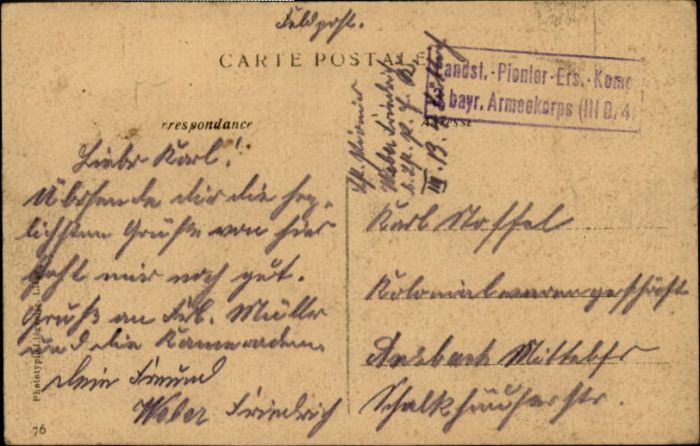 Feldpost.
CARTE POSTALE
Landst.-Pionier-Ers.-Komp
bayr. Armeekorps (III B. 4)
rrespondance
Adresse
Weber Friedrich
III. B. 4.
Liebr Karl!
Übersende dir die herz-
lichsten Grüße von hier
geht mir noch gut.
Gruß an Frl. Müller
und die Kameraden.
Dein Freund
Weber Friedrich
Karl Stoffel
Kolonialwarengeschäft
Ansbach Mittelfr
Schalkhäuserstr.
Phototypie
76